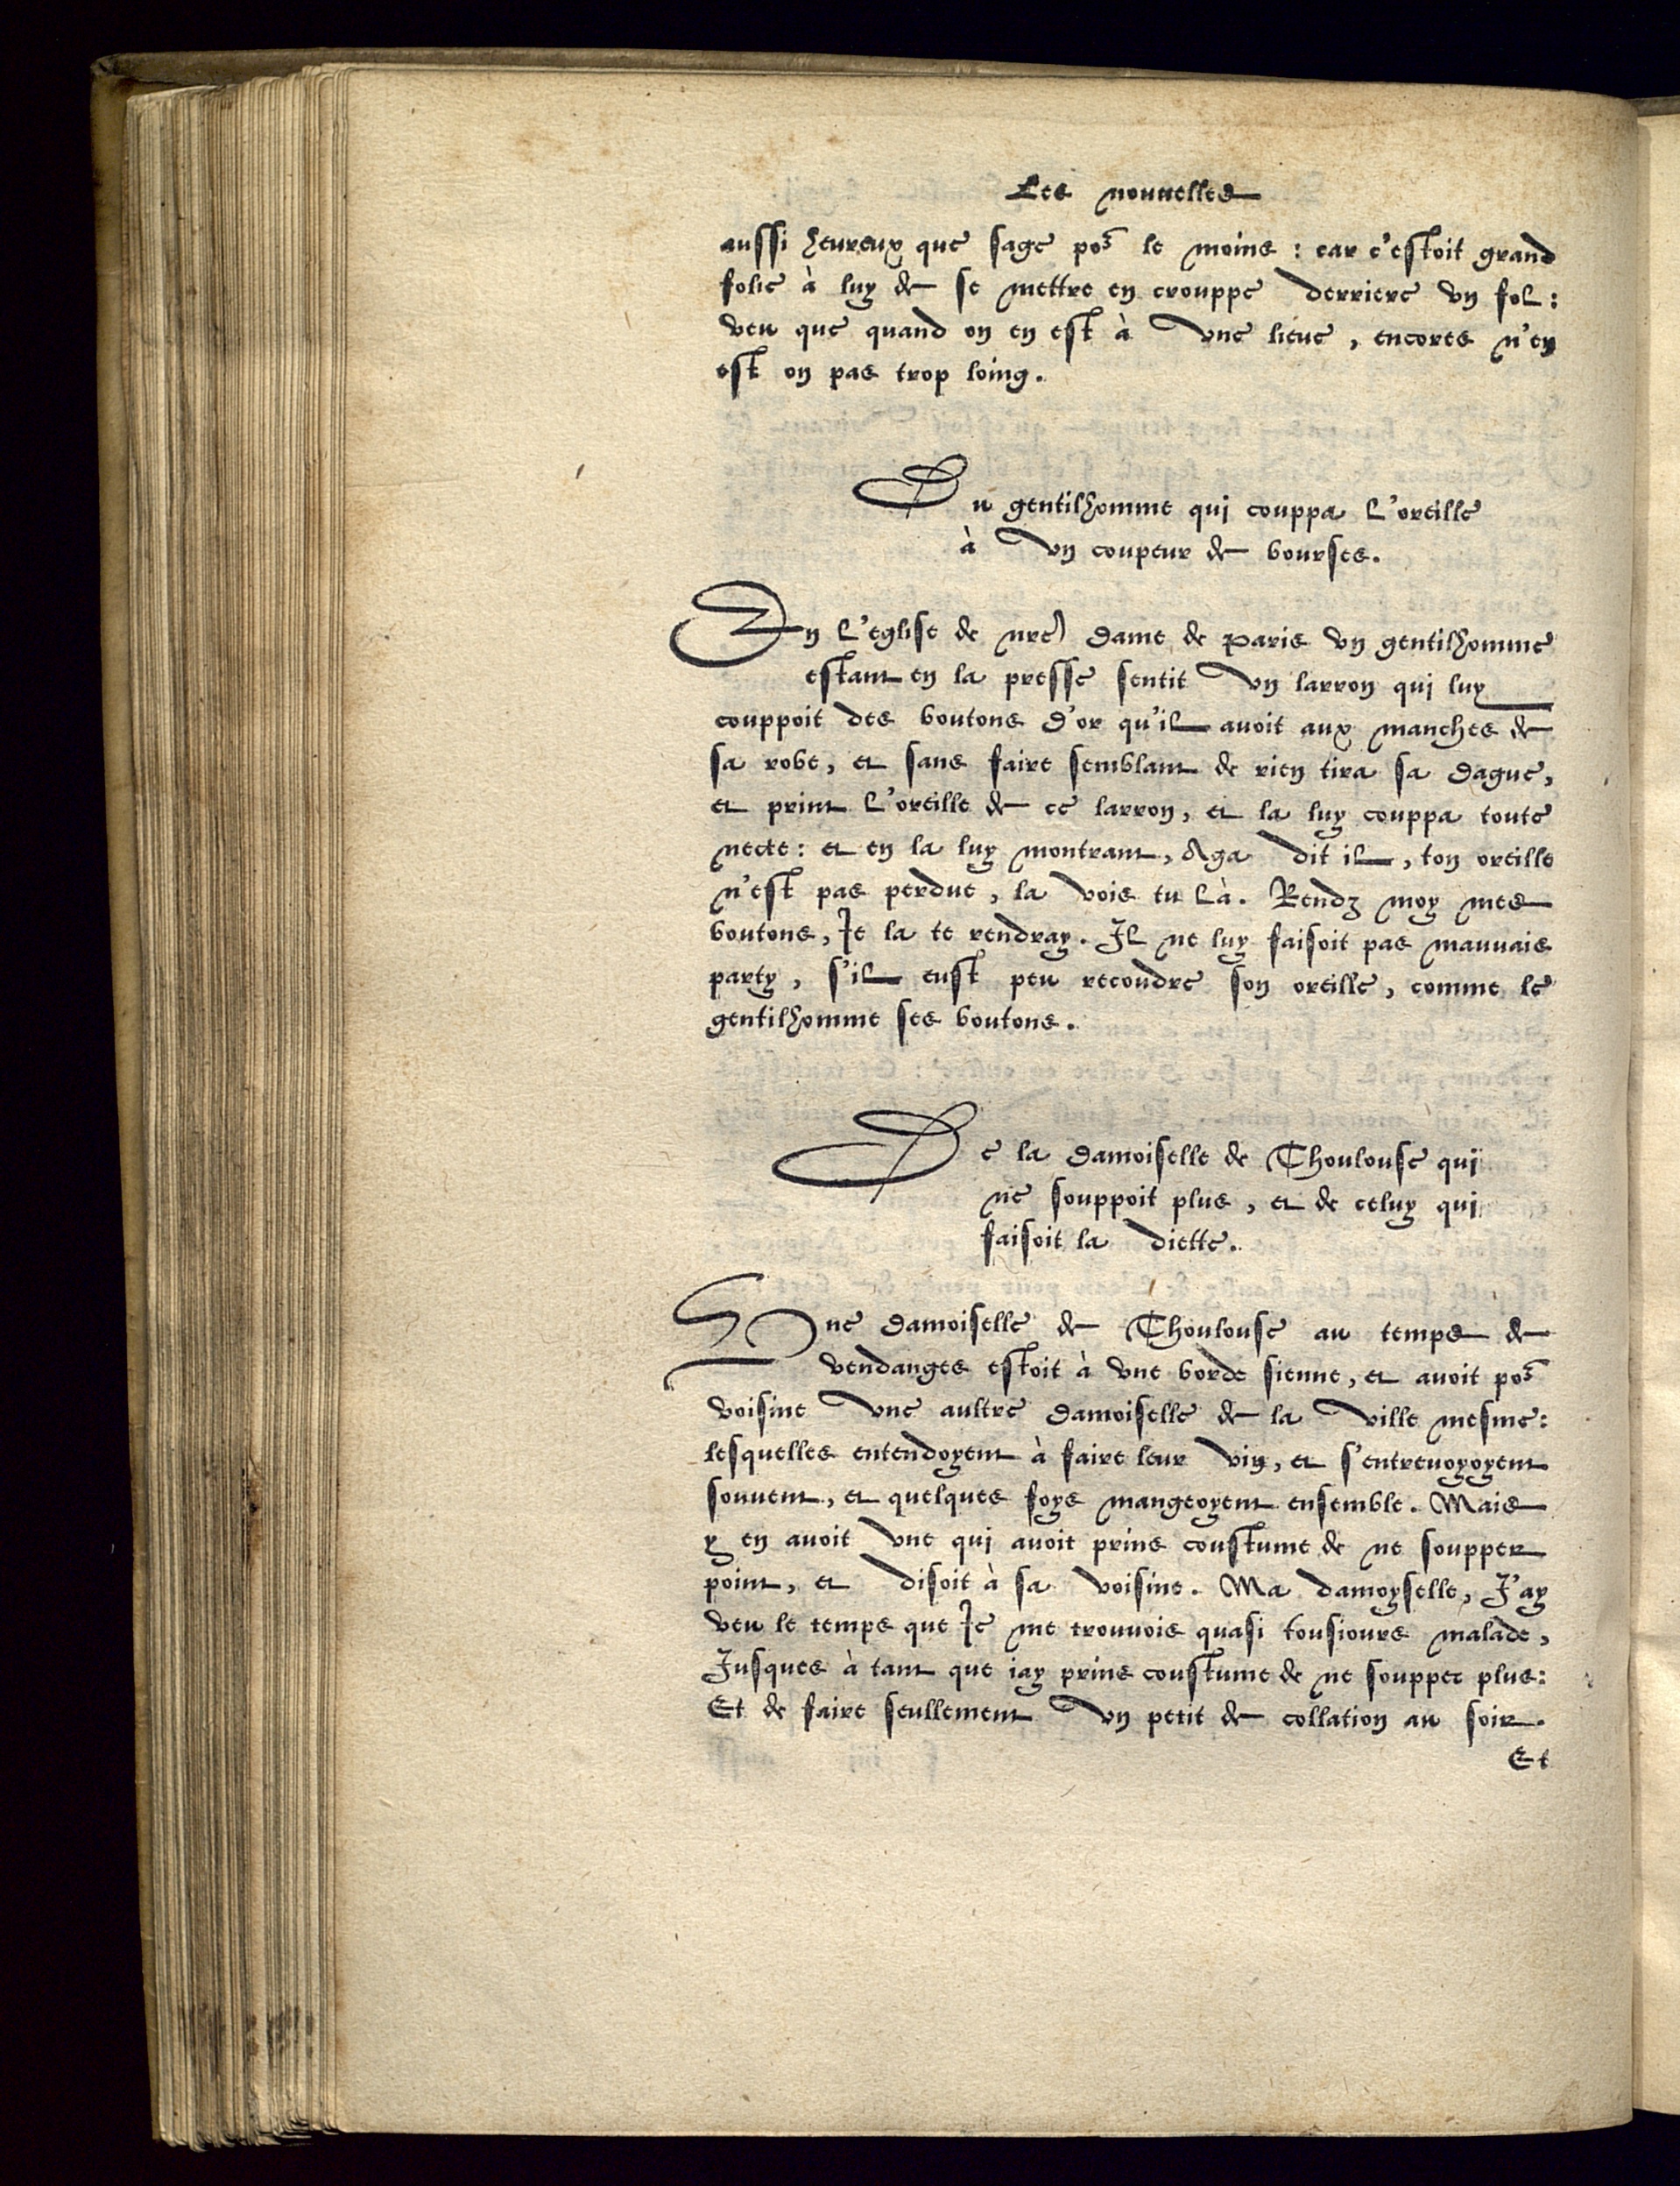 Les nouuelles
aussi heureux que sage pos le moins : car c'estoit grand
folie à luy de se mettre en crouppe derriere vn fol :
veu que quand on en est à vne lieue , encores n'en
est on pas trop loing .
Du gentilhomme qui couppa l'oreille
à vn coupeur de bourses .
En l'eglise de nre dame de Paris vn gentilhomme
estant en la presse sentit vn larron qui luy
couppoit des boutons d'or qu'il auoit aux manches de
sa robe , et sans faire semblant de rien tira sa dague ,
et print l'oreille de ce larron , et la luy couppa toute
necte : et en la luy montrant , Aga dit il , ton oreille
n'est pas perdue , la vois tu là . Rendz moy mes
boutons , Ie la te rendray . Il ne luy faisoit pas mauuais
party , s'il eust peu recoudre son oreille , comme le
gentilhomme ses boutons .
De la damoiselle de Thoulouse qui
ne souppoit plus , et de celuy qui
faisoit la diette .
Vne damoiselle de Thoulouse au temps de
vendanges estoit à vne borde sienne , et auoit pos
voisine vne aultre damoiselle de la ville mesme :
lesquelles entendoyent à faire leur vin , et s'entreuoyoyent
souuent , et quelques foys mangeoyent ensemble . Mais
y en auoit vne qui auoit prins coustume de ne soupper
point , et disoit à sa voisine . Ma damoyselle , J'ay
veu le temps que Ie me trouuois quasi tousiours malade ,
Jusques à tant que iay prins coustume de ne soupper plus :
Et de faire seullement vn petit de collation au soir .
Et